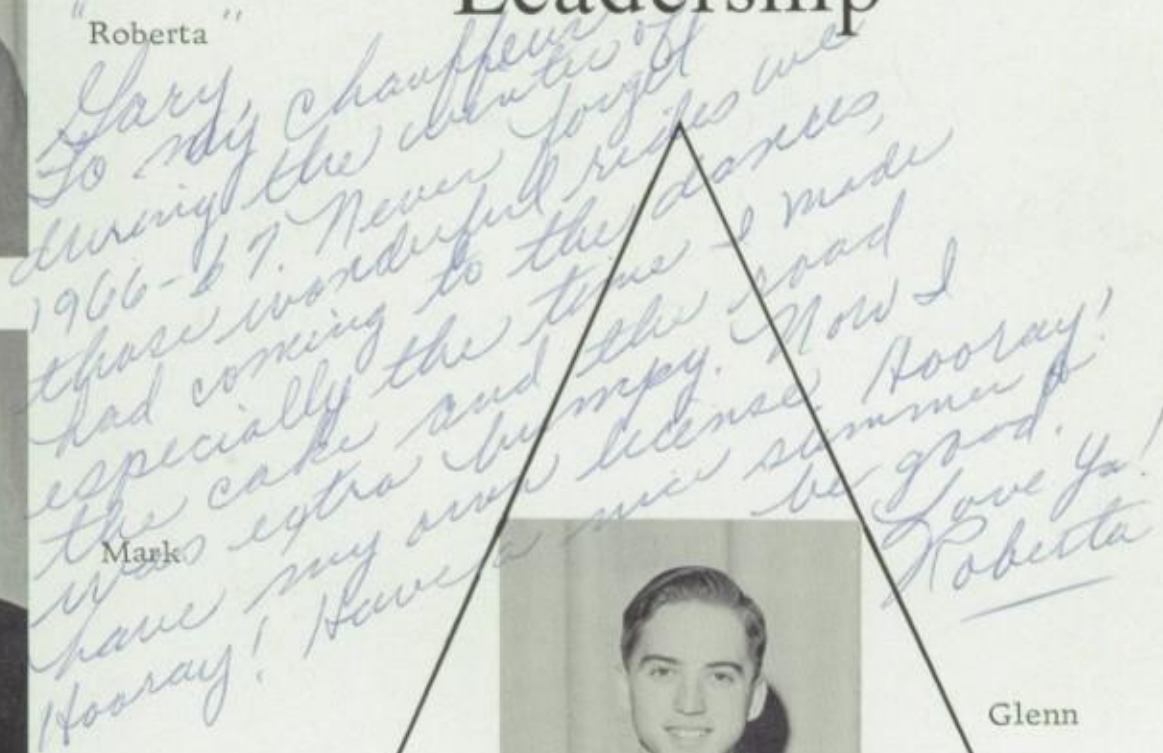 Leadership
"Roberta"
Gary,
To my chauffeur
during the winter of
1966-67. Never forget
those wonderful rides we
had coming to the dances,
especially the time I made
the cake and the road
was extra bumpy. Now I
have my own license. Hooray!
Hooray! Have a nice summer &
be good.
Love Ya!
Roberta
Mark
Glenn